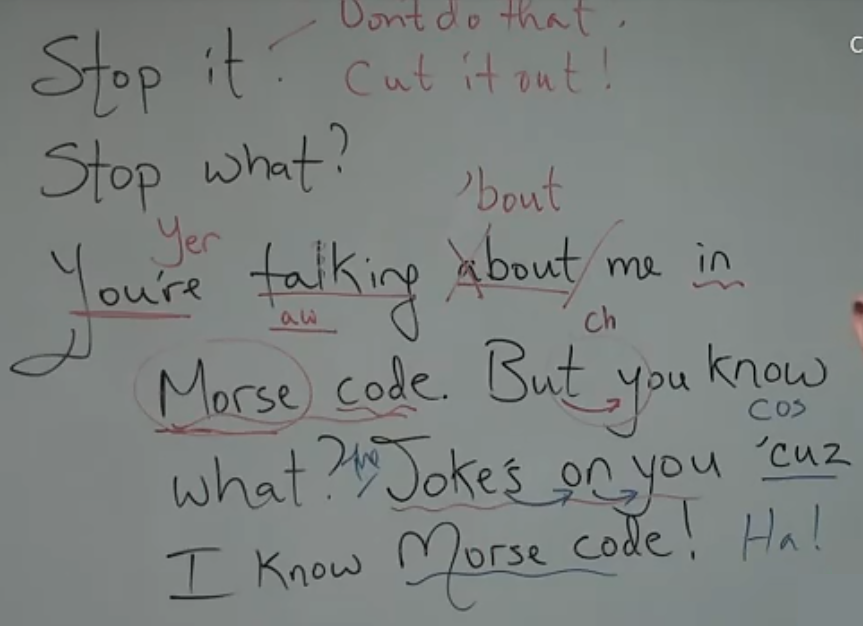 Don't do that.
Stop it! Cut it out!
Stop what?
'bout
Yer
You're talking about me in
aw
ch
Morse code. But you know
cos
what? the Joke's on you 'cuz
I know Morse code! Ha!